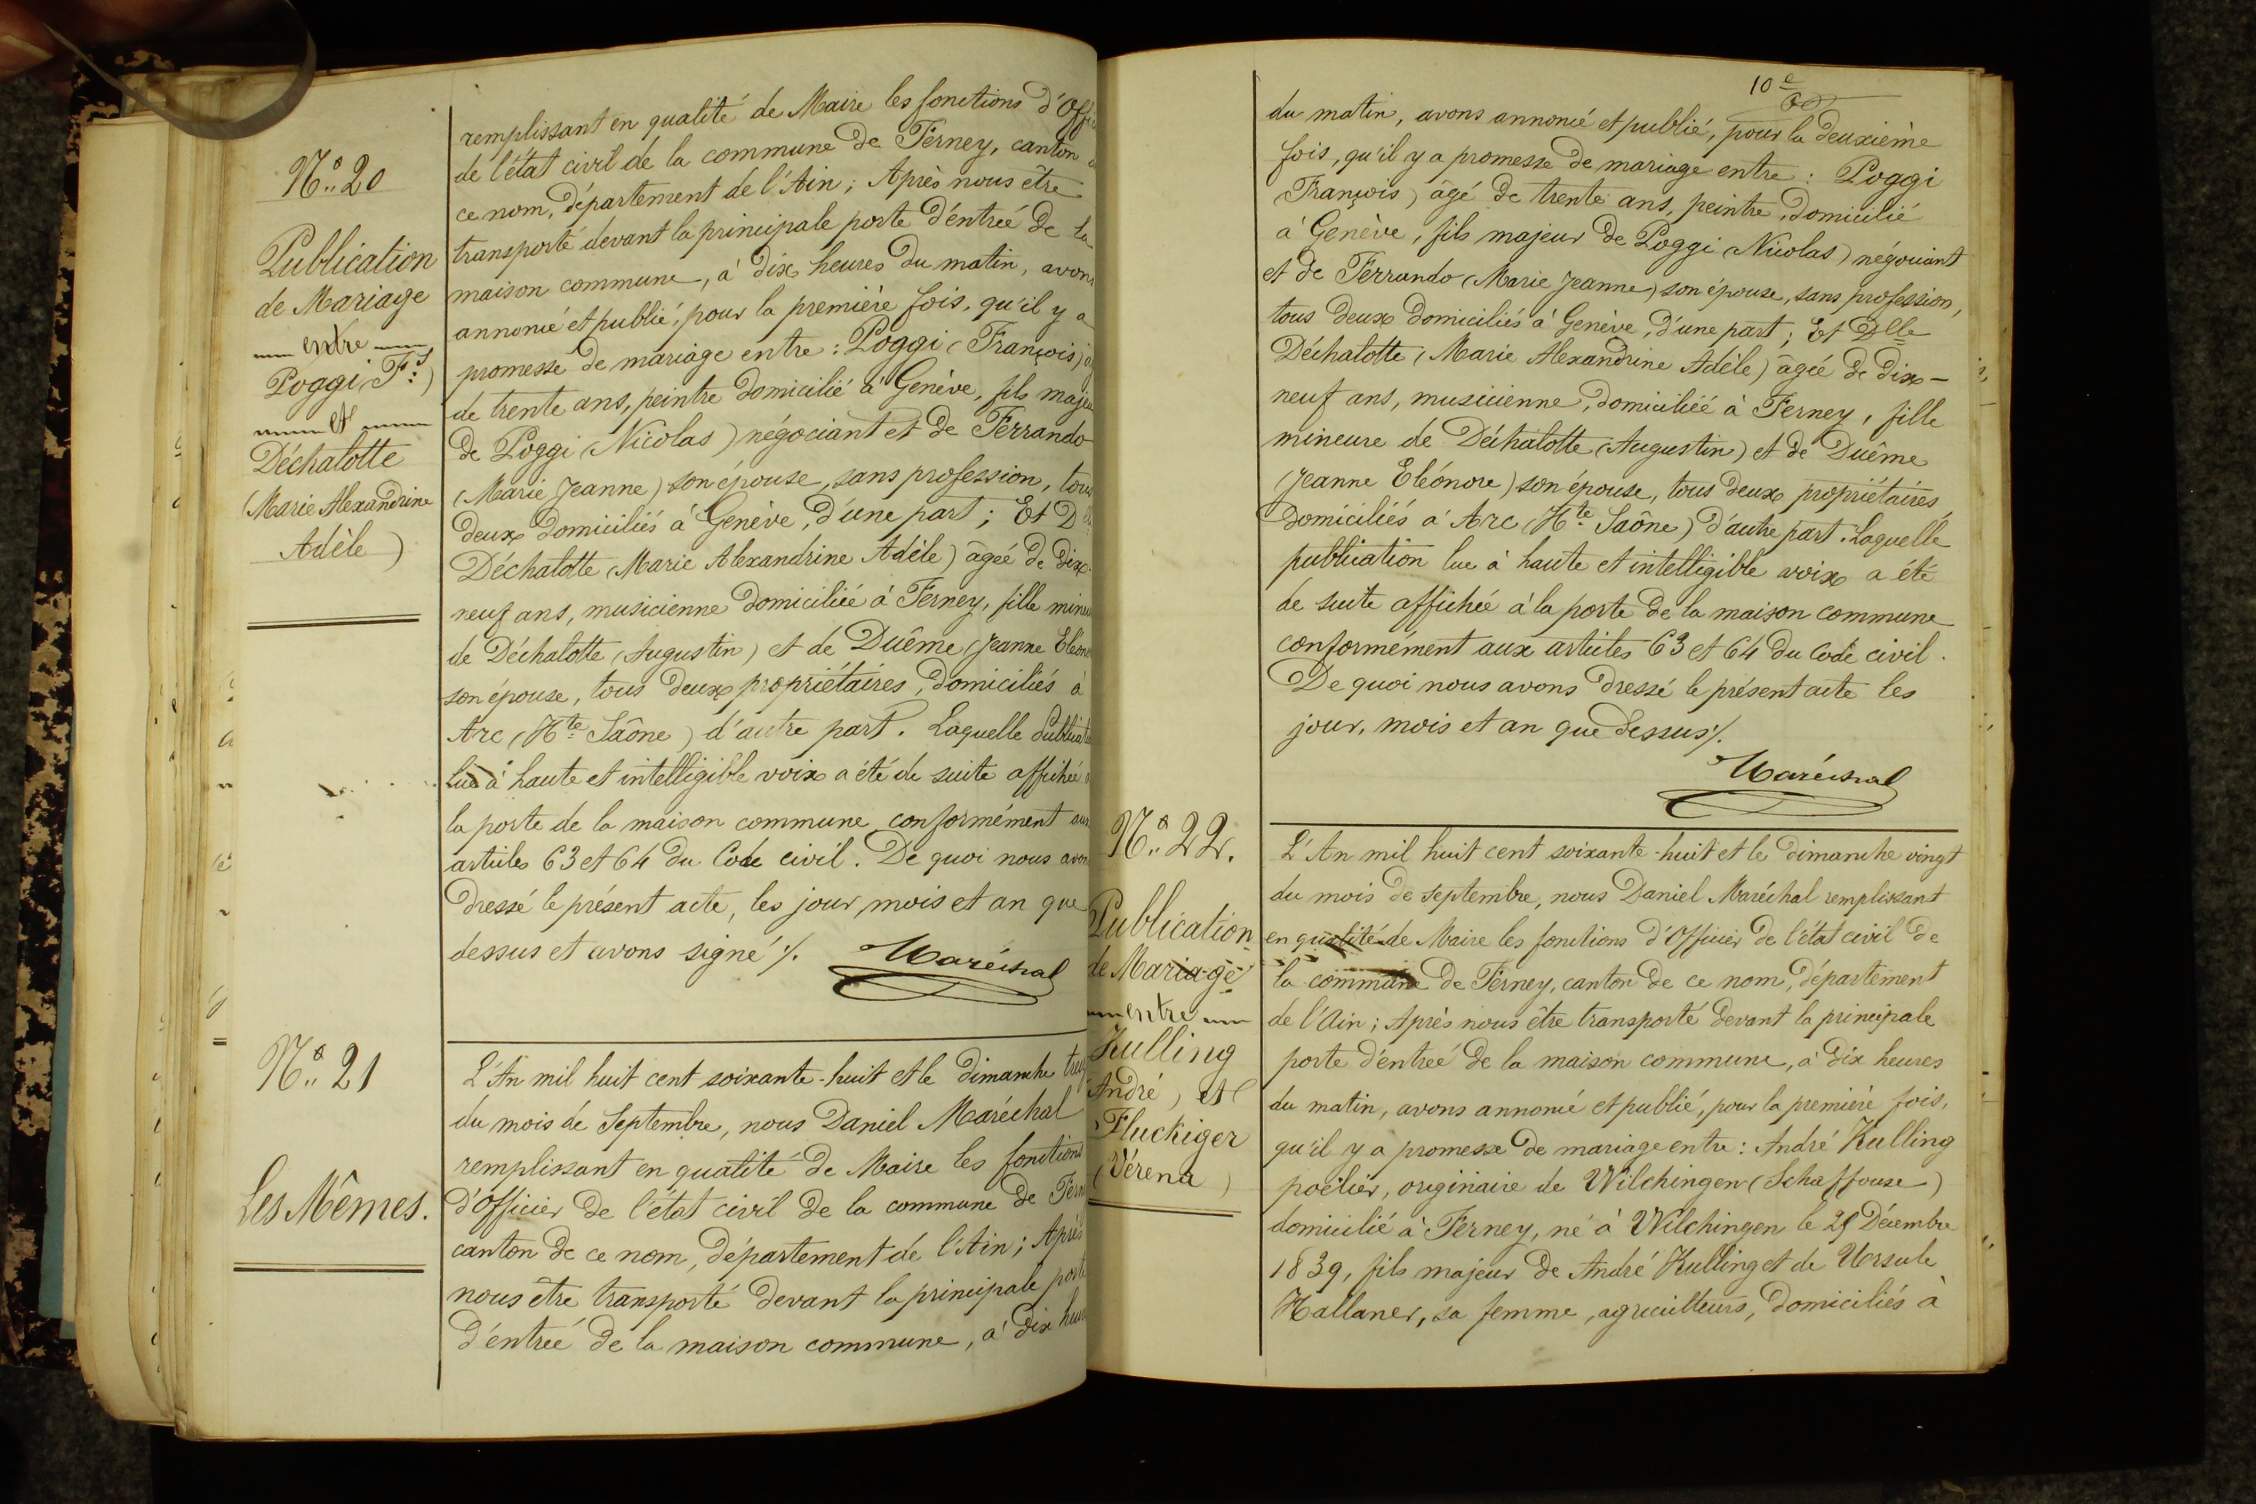 N.° 20
Publication
de Mariage
entre
Poggi (F.s)
et
Déchalotte
(Marie Alexandrine
Adèle)
remplissant en qualité de Maire les fonctions d'Offi
de l'état civil de la commune de Ferney, canton
ce nom, département de l'Ain; Après nous être
transporté devant la principale porte d'entrée de la
maison commune, à dix heures du matin, avons
annoncé et publié, pour la première fois, qu'il y a
promesse de mariage entre: Poggi (François)
de trente ans, peintre domicilié à Genève, fils majeu
de Poggi (Nicolas) négociant et de Ferrando
(Marie Jeanne) son épouse, sans profession, tous
deux domiciliés à Genève, d'une part; Et D
Déchalotte (Marie Alexandrine Adèle) âgée de dix-
neuf ans, musicienne domiciliée à Ferney, fille mineu
de Déchalotte (Augustin) et de Duême (Jeanne Eléono
son épouse, tous deux propriétaires, domiciliés à
Arc (Hte Saône) d'autre part. Laquelle Publicat
lue à haute et intelligible voix a été de suite affichée
la porte de la maison commune conformément aux
articles 63 et 64 du Code civil. De quoi nous avon
dressé le présent acte, les jour mois et an que
dessus et avons signé ./.
Maréchal
N.° 21
Les Mêmes.
L'An mil huit cent soixante-huit et le dimanche treiz
du mois de Septembre, nous Daniel Maréchal
remplissant en qualité de Maire les fonctions
d'Officier de l'état civil de la commune de Fern
canton de ce nom, département de l'Ain; Après
nous être transporté devant la principale porte
d'entrée de la maison commune, à dix heu
10e
du matin, avons annoncé et publié, pour la deuxième
fois, qu'il y a promesse de mariage entre: Poggi
(François) âgé de trente ans, peintre, domicilié
à Genève, fils majeur de Poggi (Nicolas) négociant
et de Ferrando (Marie Jeanne) son épouse, sans profession,
tous deux domiciliés à Genève, d'une part; Et Dlle
Déchalotte (Marie Alexandrine Adèle) âgée de dix-
neuf ans, musicienne, domiciliée à Ferney, fille
mineure de Déchalotte (Augustin) et de Duême
(Jeanne Eléonore) son épouse, tous deux propriétaires,
domiciliés à Arc (Hte Saône) d'autre part. Laquelle
publication lue à haute et intelligible voix a été
de suite affichée à la porte de la maison commune
conformément aux articles 63 et 64 du Code civil.
De quoi nous avons dressé le présent acte les
jour, mois et an que dessus ./.
Maréchal
N.° 22.
Publication
de Mariage
entre
Kulling
André) et
Fluckiger
(Vérena)
L'An mil huit cent soixante-huit et le dimanche vingt
du mois de septembre, nous Daniel Maréchal remplissant
en qualité de Maire les fonctions d'Officier de l'état civil de
la commune de Ferney, canton de ce nom, département
de l'Ain; Après nous être transporté devant la principale
porte d'entrée de la maison commune, à dix heures
du matin, avons annoncé et publié, pour la première fois,
qu'il y a promesse de mariage entre: André Kulling
poëlier, originaire de Wilchingen (Schaffouse)
domicilié à Ferney, né à Wilchingen le Décembre
1839, fils majeur de André Kulling et de Ursule
Hallaner, sa femme, agriculteurs, domiciliés à